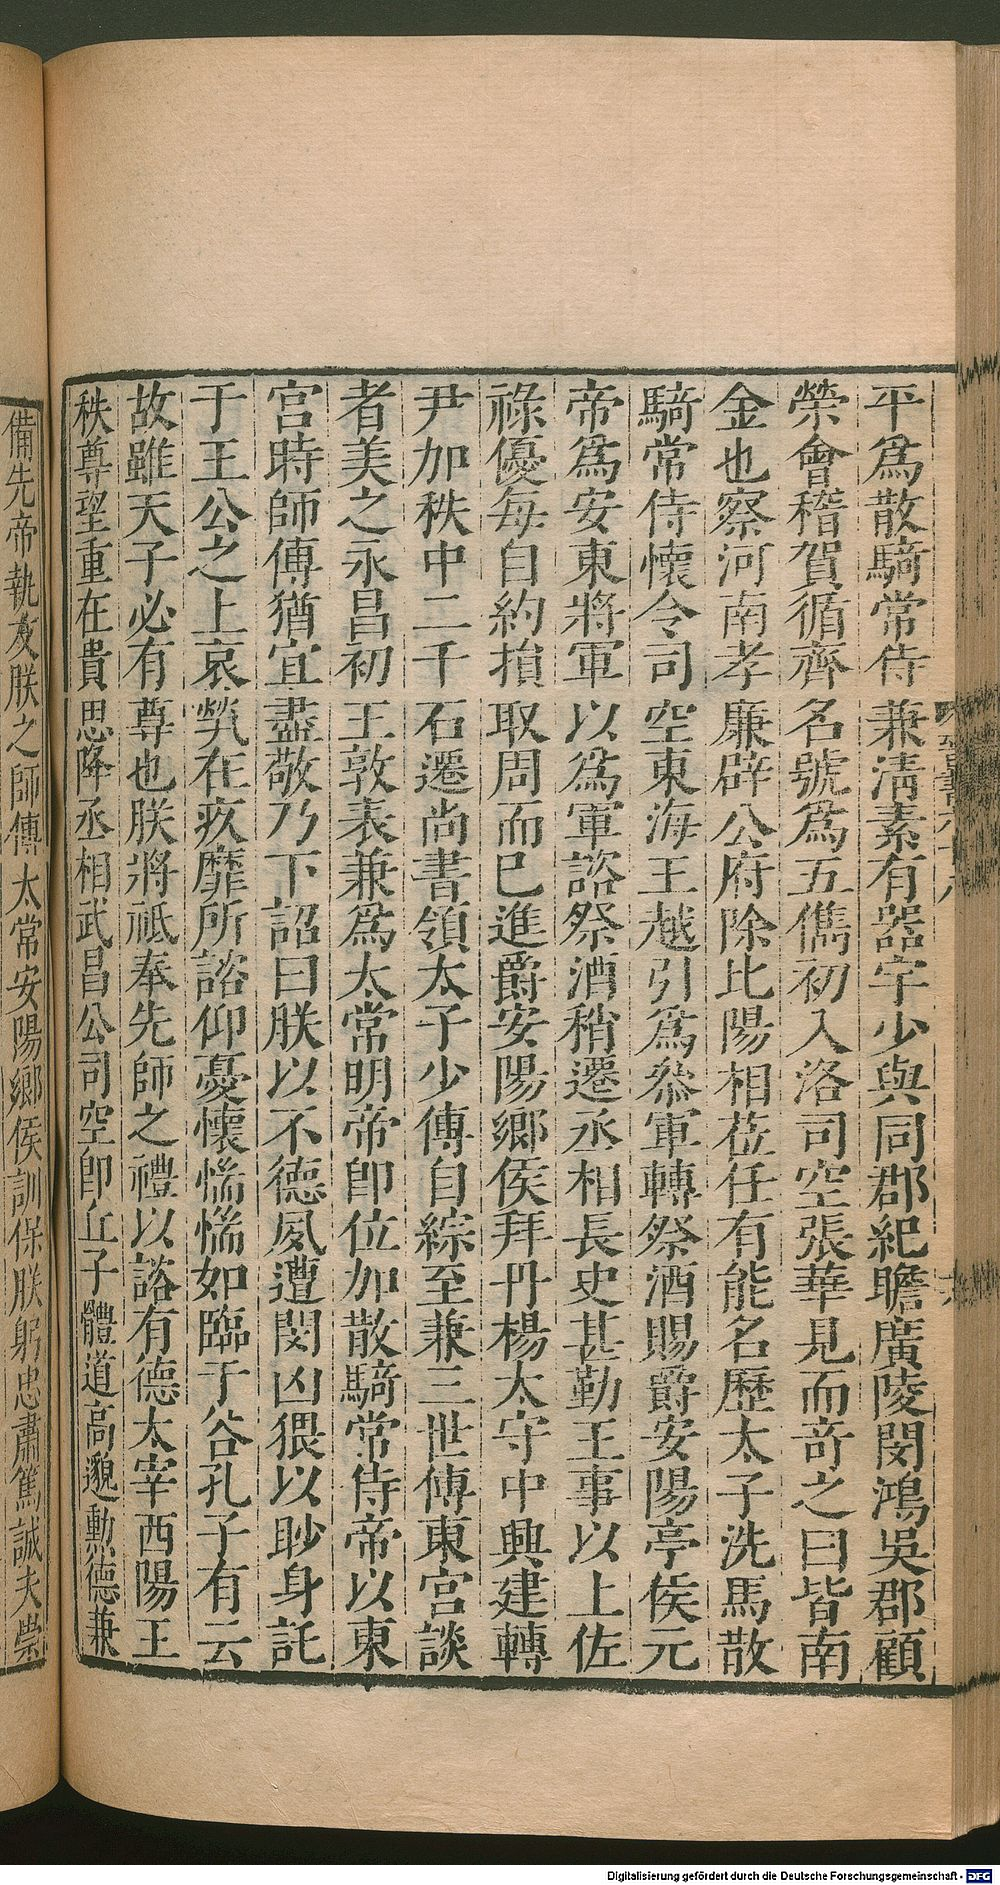 平爲散騎常侍兼淸素有器宇少與同郡紀瞻廣陵閔鴻吳郡顧
榮會稽賀循齊名號爲五儁初入洛司空張華見而奇之曰皆南
金也察河南孝廉辟公府除比陽相莅任有能名歷太子洗馬散
騎常侍懷令司空東海王越引爲叅軍轉祭酒賜爵安陽亭侯元
帝爲安東將軍以爲軍諮祭酒稍遷丞相長史甚勤王事以上佐
祿優每自約損取周而已進爵安陽鄉侯拜丹楊太守中興建轉
尹加秩中二千石遷尚書領太子少傅自綜至兼三世傅東宮談
者美之永昌初王敦表兼爲太常明帝即位加散騎常侍帝以東
宮時師傅猶宜盡敬乃下詔曰朕以不德夙遭閔凶猥以眇身託
于王公之上哀煢在疚靡所諮仰憂懷惴惴如臨于谷孔子有云
故雖天子必有尊也朕將祗奉先師之禮以諮有德太宰西陽王
秩尊望重在貴思降丞相武昌公司空即丘子體道高邈勳德兼
備先帝執友朕之師傅太常安陽鄉侯訓保朕躬忠肅篤誠夫崇
Digitalisierung gefördert durch die Deutsche Forschungsgemeinschaft - DFG